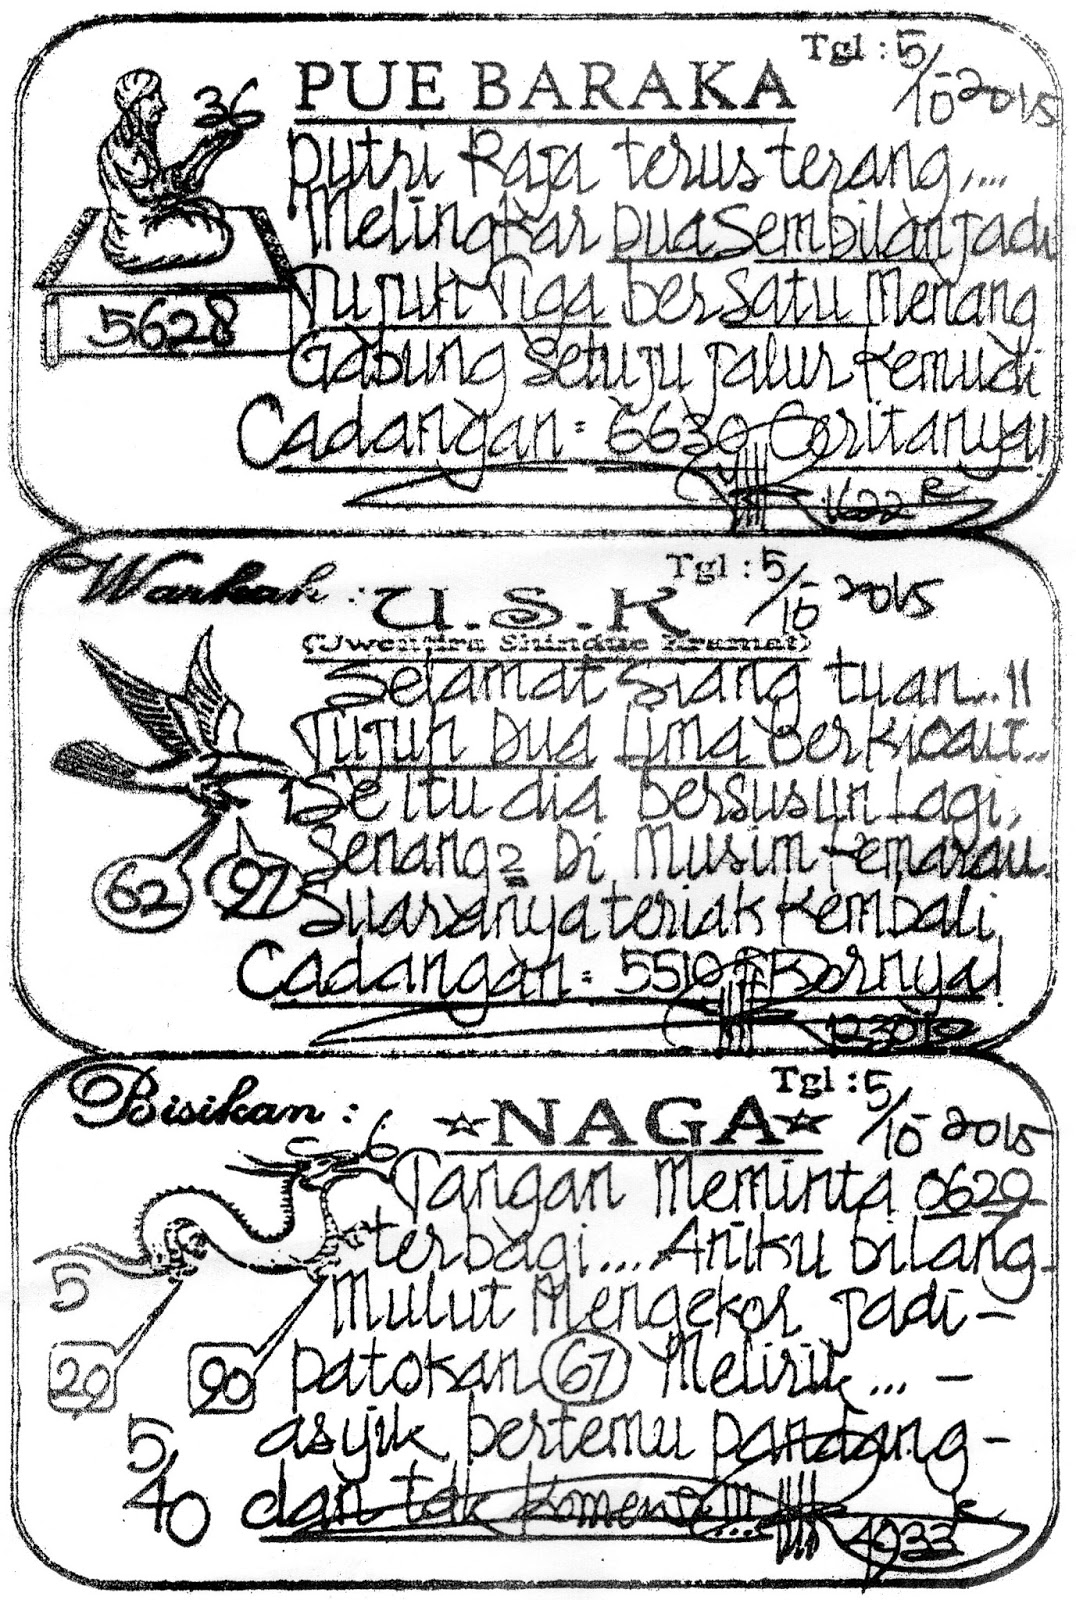 Tgl : 5/10-2015
PUE BARAKA
36
Putri Raja terus terang,...
Melingkar Dua Sembilan Jadi
Tujuh Tiga bersatu Menang
5628
Gabung Setuju Jalur Kemudi
Cadangan = 6630 Ceritanya!
1622
Warkah : U.S.K
Tgl : 5/10-2015
(Uwentira Shindue Kramat)
Selamat Siang tuan..!!
Tujuh Dua Lima Berkibar...
Se itu dia bersusun Lagi,
62 97
Senang2 Di Musim Kemarau.
Suaranya teriak Kembali
Cadangan = 5510 Kornya!
Bisikan : ☆NAGA☆
Tgl : 5/10-2015
6
Tangan Meminta 0629
terbagi... Aniku bilang-
5
Mulut Mengekor Jadi-
29 90
patokan 67 Melirik... -
5
asyik bertemu pandang-
40
dan tdk
4933